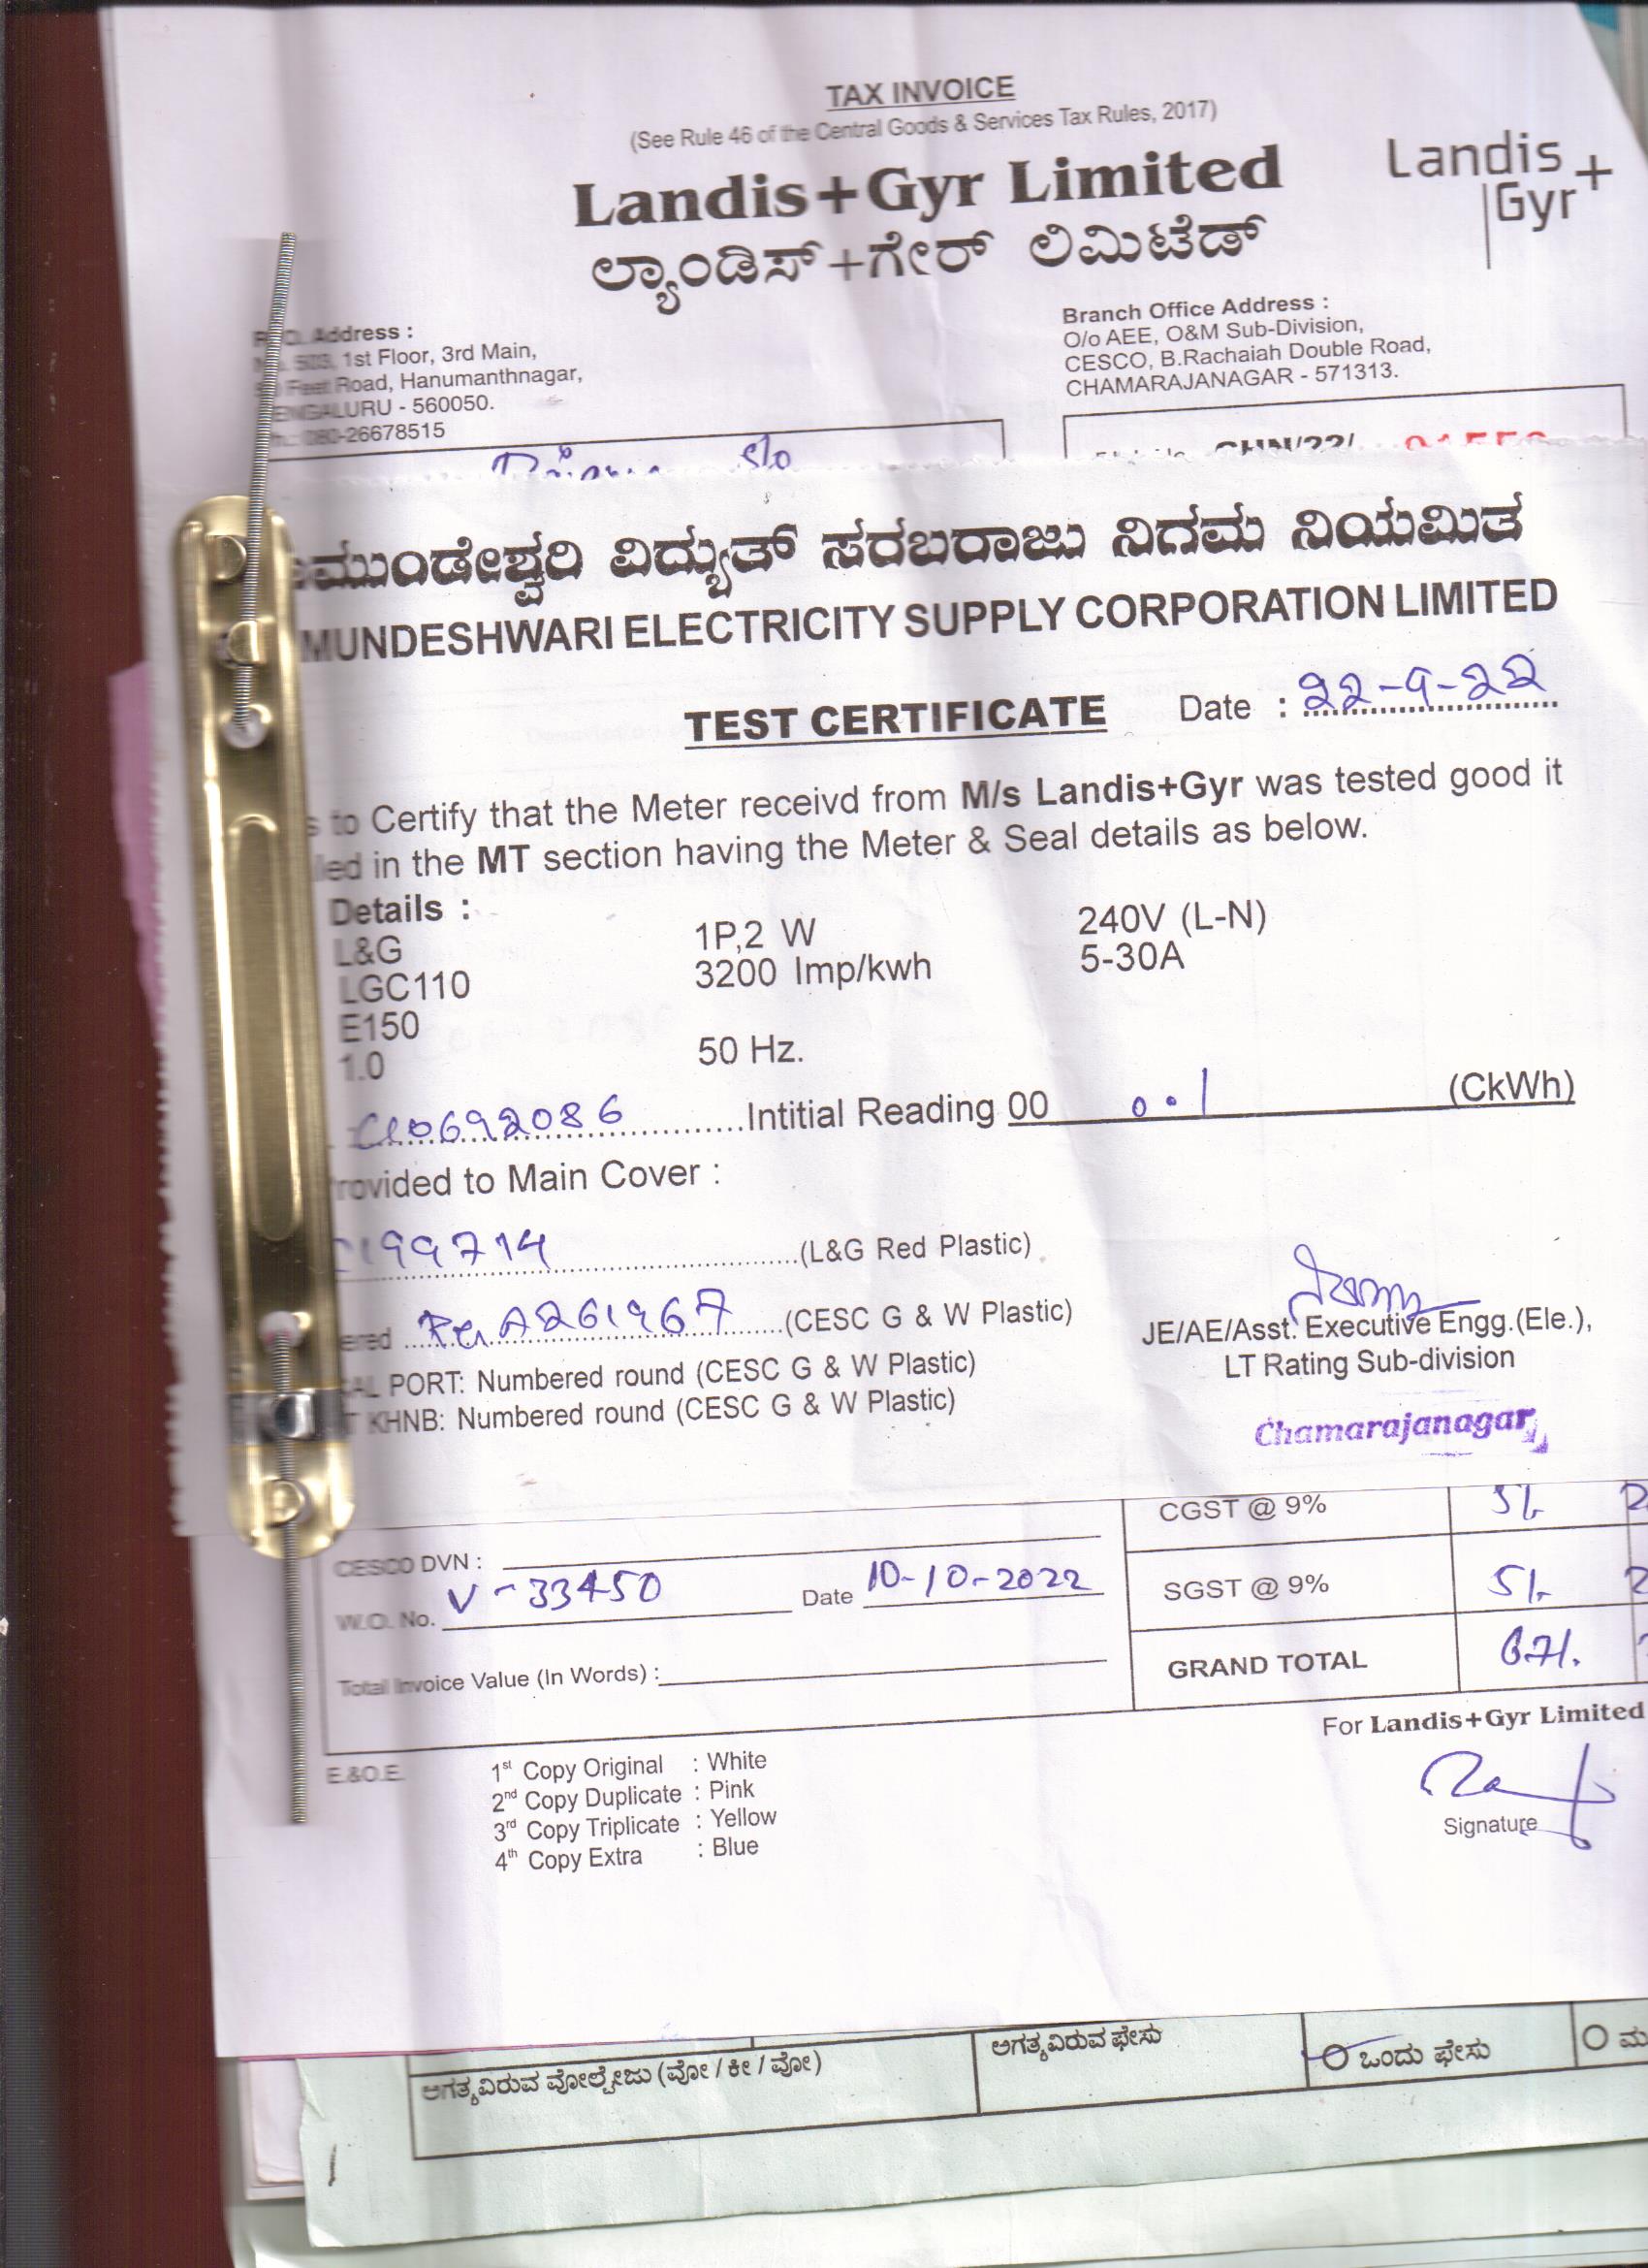 TAX INVOICE
(See Rule 46 of the Central Goods & Services Tax Rules, 2017)
Landis+Gyr Limited
Landis
Gyr
ಲ್ಯಾಂಡಿಸ್+ಗೇರ್ ಲಿಮಿಟೆಡ್
Address :
1st Floor, 3rd Main,
Feet Road, Hanumanthnagar,
BENGALURU - 560050.
080-26678515
Branch Office Address :
O/o AEE, O&M Sub-Division,
CESCO, B.Rachaiah Double Road,
CHAMARAJANAGAR - 571313.
S/o
ಮುಂಡೇಶ್ವರಿ ವಿದ್ಯುತ್ ಸರಬರಾಜು ನಿಗಮ ನಿಯಮಿತ
MUNDESHWARI ELECTRICITY SUPPLY CORPORATION LIMITED
TEST CERTIFICATE Date : 22-9-22
to Certify that the Meter receivd from M/s Landis+Gyr was tested good it
led in the MT section having the Meter & Seal details as below.
Details :
L&G 1P,2 W 240V (L-N)
LGC110 3200 Imp/kwh 5-30A
E150
1.0 50 Hz.
0692086 Intitial Reading 00 0.1 (CkWh)
rovided to Main Cover :
199714 (L&G Red Plastic)
ered A261967 (CESC G & W Plastic)
PORT: Numbered round (CESC G & W Plastic)
KHNB: Numbered round (CESC G & W Plastic)
JE/AE/Asst. Executive Engg.(Ele.),
LT Rating Sub-division
Chamarajanagar
CESCO DVN :
W.O. No. V-33450 Date 10-10-2022
Total Invoice Value (In Words) :
CGST @ 9% 51.
SGST @ 9% 51.
GRAND TOTAL 671.
For Landis+Gyr Limited
Signature
E.&O.E.
1st Copy Original : White
2nd Copy Duplicate : Pink
3rd Copy Triplicate : Yellow
4th Copy Extra : Blue
ಅಗತ್ಯವಿರುವ ವೋಲ್ಟೇಜು (ವೋ / ಕೀ / ವೋ)
ಅಗತ್ಯವಿರುವ ಫೇಸು
ಒಂದು ಫೇಸು